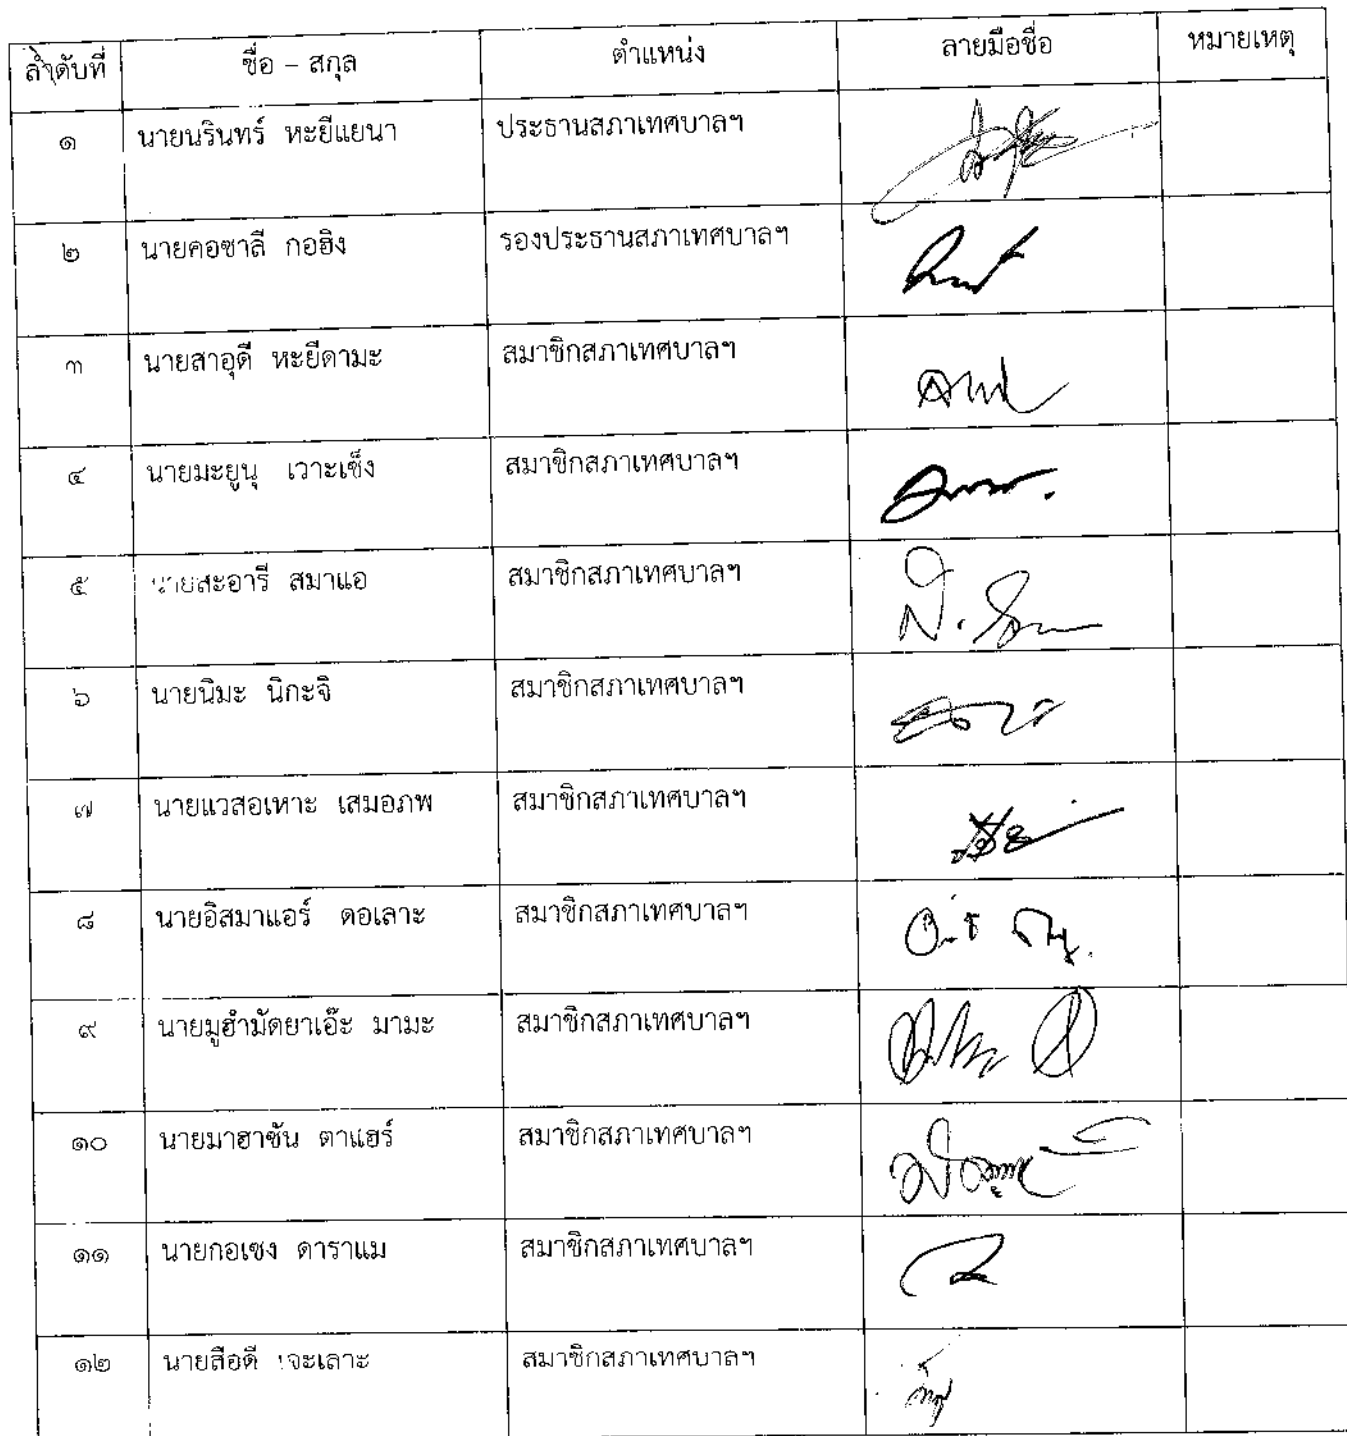 ลำดับที่ ชื่อ – สกุล ตำแหน่ง ลายมือชื่อ หมายเหตุ
๑ นายนรินทร์ หะยีแยนา ประธานสภาเทศบาลฯ
๒ นายคอซาลี กอฮิง รองประธานสภาเทศบาลฯ
๓ นายสาอุดี หะยีดามะ สมาชิกสภาเทศบาลฯ
๔ นายมะยูนุ เวาะเซ็ง สมาชิกสภาเทศบาลฯ
๕ นายสะอารี สมาแอ สมาชิกสภาเทศบาลฯ
๖ นายนิมะ นิกะจิ สมาชิกสภาเทศบาลฯ
๗ นายแวสอเหาะ เสมอภพ สมาชิกสภาเทศบาลฯ
๘ นายอิสมาแอร์ ดอเลาะ สมาชิกสภาเทศบาลฯ
๙ นายมูฮำมัดยาเอ๊ะ มามะ สมาชิกสภาเทศบาลฯ
๑๐ นายมาฮาซัน ตาแฮร์ สมาชิกสภาเทศบาลฯ
๑๑ นายกอเซง ดาราแม สมาชิกสภาเทศบาลฯ
๑๒ นายสือดี เจะเลาะ สมาชิกสภาเทศบาลฯ